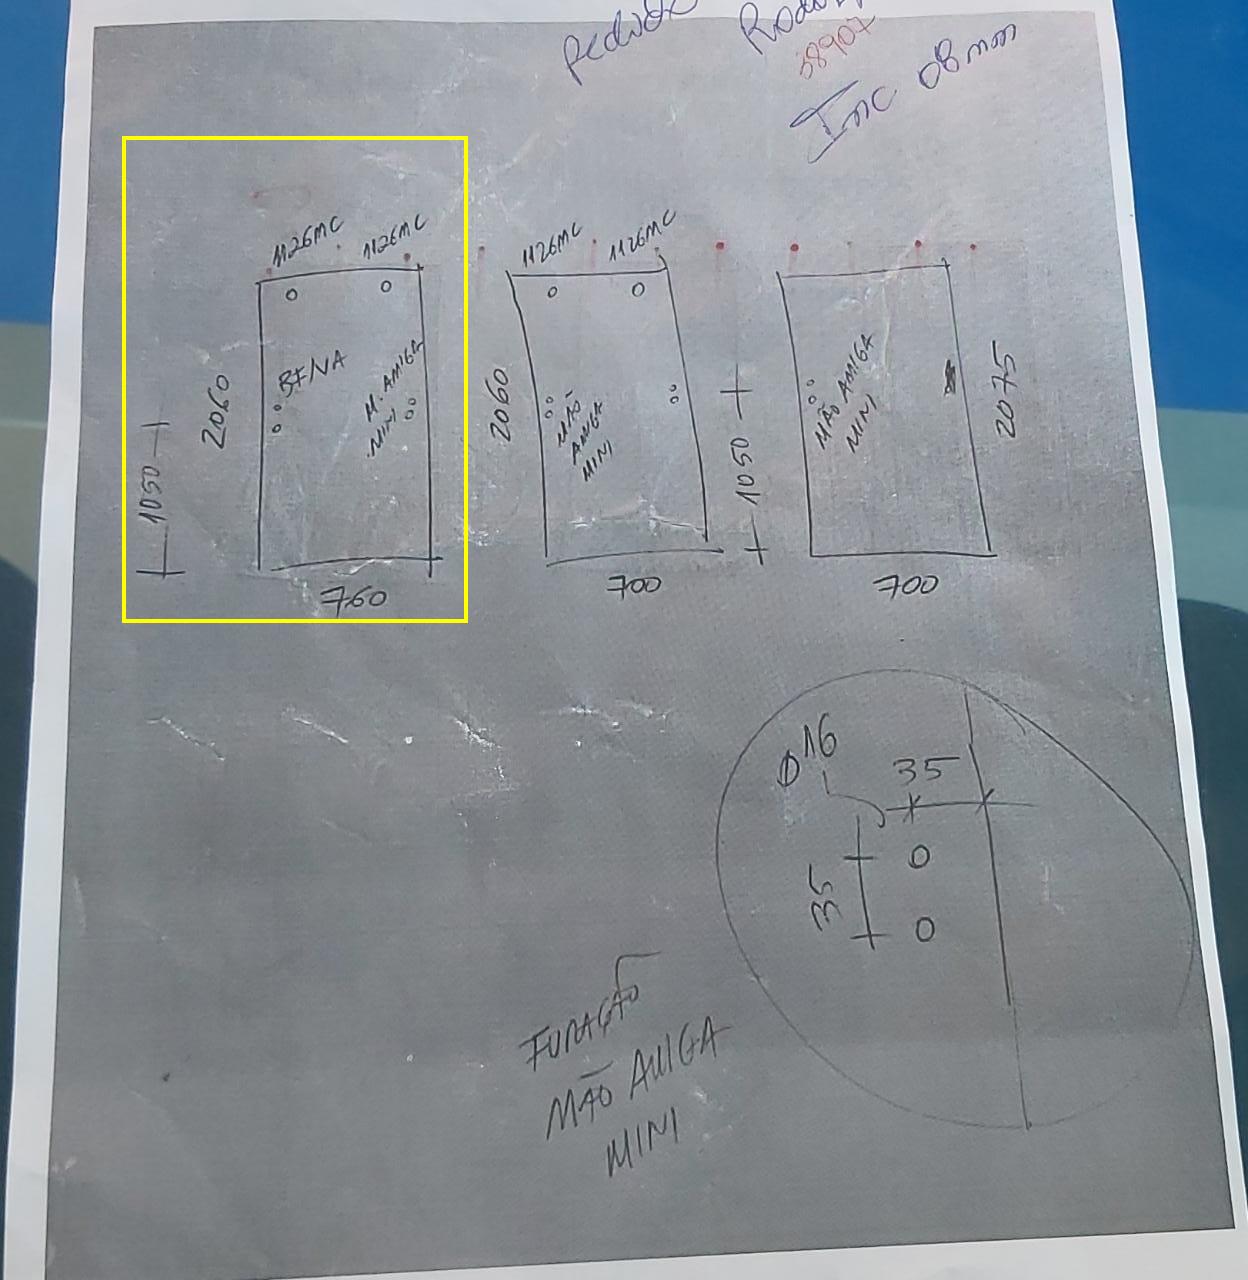 Pedido
38907
Inc 08mm
1126MC 1126MC
2060
BFNA
M. AMIGA
MINI
1050
760
1126MC 1126MC
2060
MÃO
AMIGA
MINI
1050
700
MÃO AMIGA
MINI
2075
700
Ø16
35
35
FURAÇÃO
MÃO AMIGA
MINI